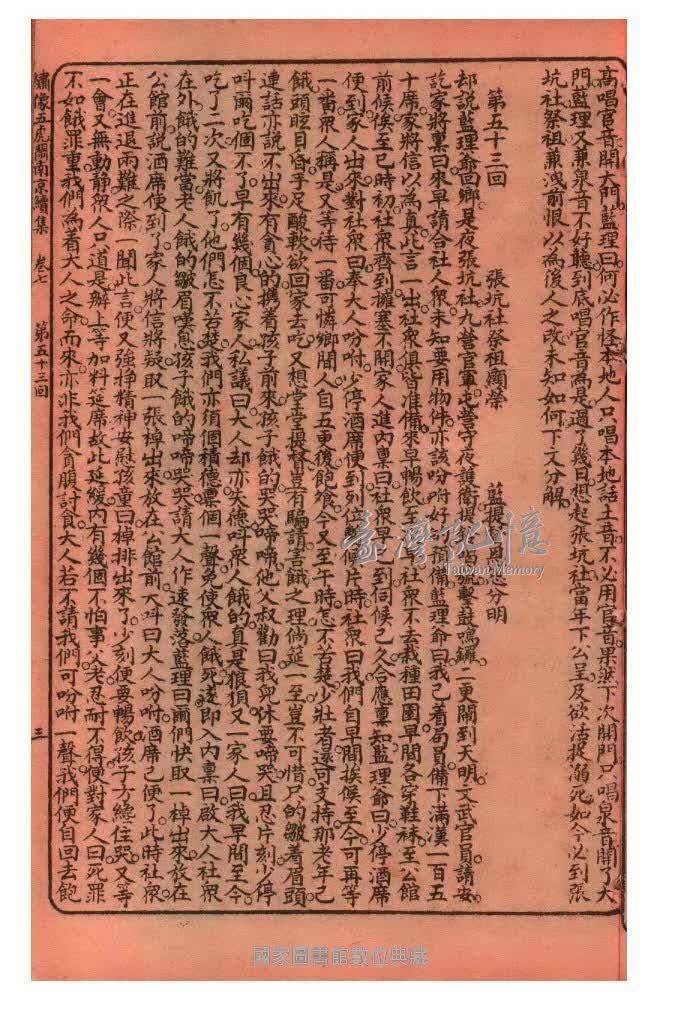 高唱官音開大門藍理曰何必作怪本地人只唱本地話土音不必用官音果然下次開門只唱泉音開了大
門藍理又兼泉音不好聽到底唱官音為是過了幾日想起張坑社當年下公呈及欲活捉溺死如今必到張
坑社祭祖兼洩前恨以為後人之改未知如何下文分解
第五十三回 張坑社祭祖顯榮 藍提 恩 分明
却說藍理爺回鄉是夜張坑社九營官軍屯營守夜護衛提 號擊鼓鳴鑼一更鬧到天明文武官員請安
訖家將稟曰來早請合社人眾未知要用物件亦該吩咐好 預備藍理爺曰我已着局員備下滿漢一百五
十席家將信以為真此言一出社眾俱皆准備來早暢飲至 社眾不去栽種田園早間各穿鞋襪至公館
前候俟至已時初社眾齊到擁塞不開家人進內稟曰社眾早已到伺候已久合應稟知藍理爺曰少停酒席
便到家人出來對社眾曰奉大人吩咐少停酒席便到列位 候片時社眾曰我們自早間挨候至今可再等
一番眾人稱是又等待一番可憐鄉間人自五更後飽飧今又至午時怎不苦楚少壯者還可支持那老年已
餓頭眩目昏手足酸軟欲回家去吃又想堂堂提督豈有騙請害餓之理倘筵一至豈不可惜只的皺着眉頭
連話亦說不出來有貪心的携着孩子前來孩子餓的哭哭啼啼他父叔勸曰我兒休要啼哭且忍片刻少停
呌爾吃個不了早有幾個良心家人私議曰大人却亦失德呌眾人餓的真是狼狽又一家人曰我早間至今
吃了二次又將飢了他們怎不若楚我們亦須個積德稟個一聲免使眾人餓死遂即入內稟曰啟大人社眾
在外餓的難當老人餓的皺眉嘆息孩子餓的啼啼哭哭請大人作速發落藍理曰爾們快取一棹出來放在
公館前說酒席便到了家人將信將疑取一張棹出來放在公館前大呌曰大人吩咐酒席已便了此時社眾
正在進退兩難之際一聞此言便又強掙精神安慰孩童曰棹排出來了少刻便要暢飲孩子方總住哭又等
一會又無動靜眾人只道是辦上等加料延席故此延緩內有幾個不怕事父老忍耐不得便對家人曰死罪
不如餓罪重我們為着大人之命而來亦非我們貪餚討食大人若不請我們可吩咐一聲我們便自回去飽
繡像五虎鬧南京續集 卷七 第五十三回 三
臺灣記憶
Taiwan Memory
國家圖書館數位典藏